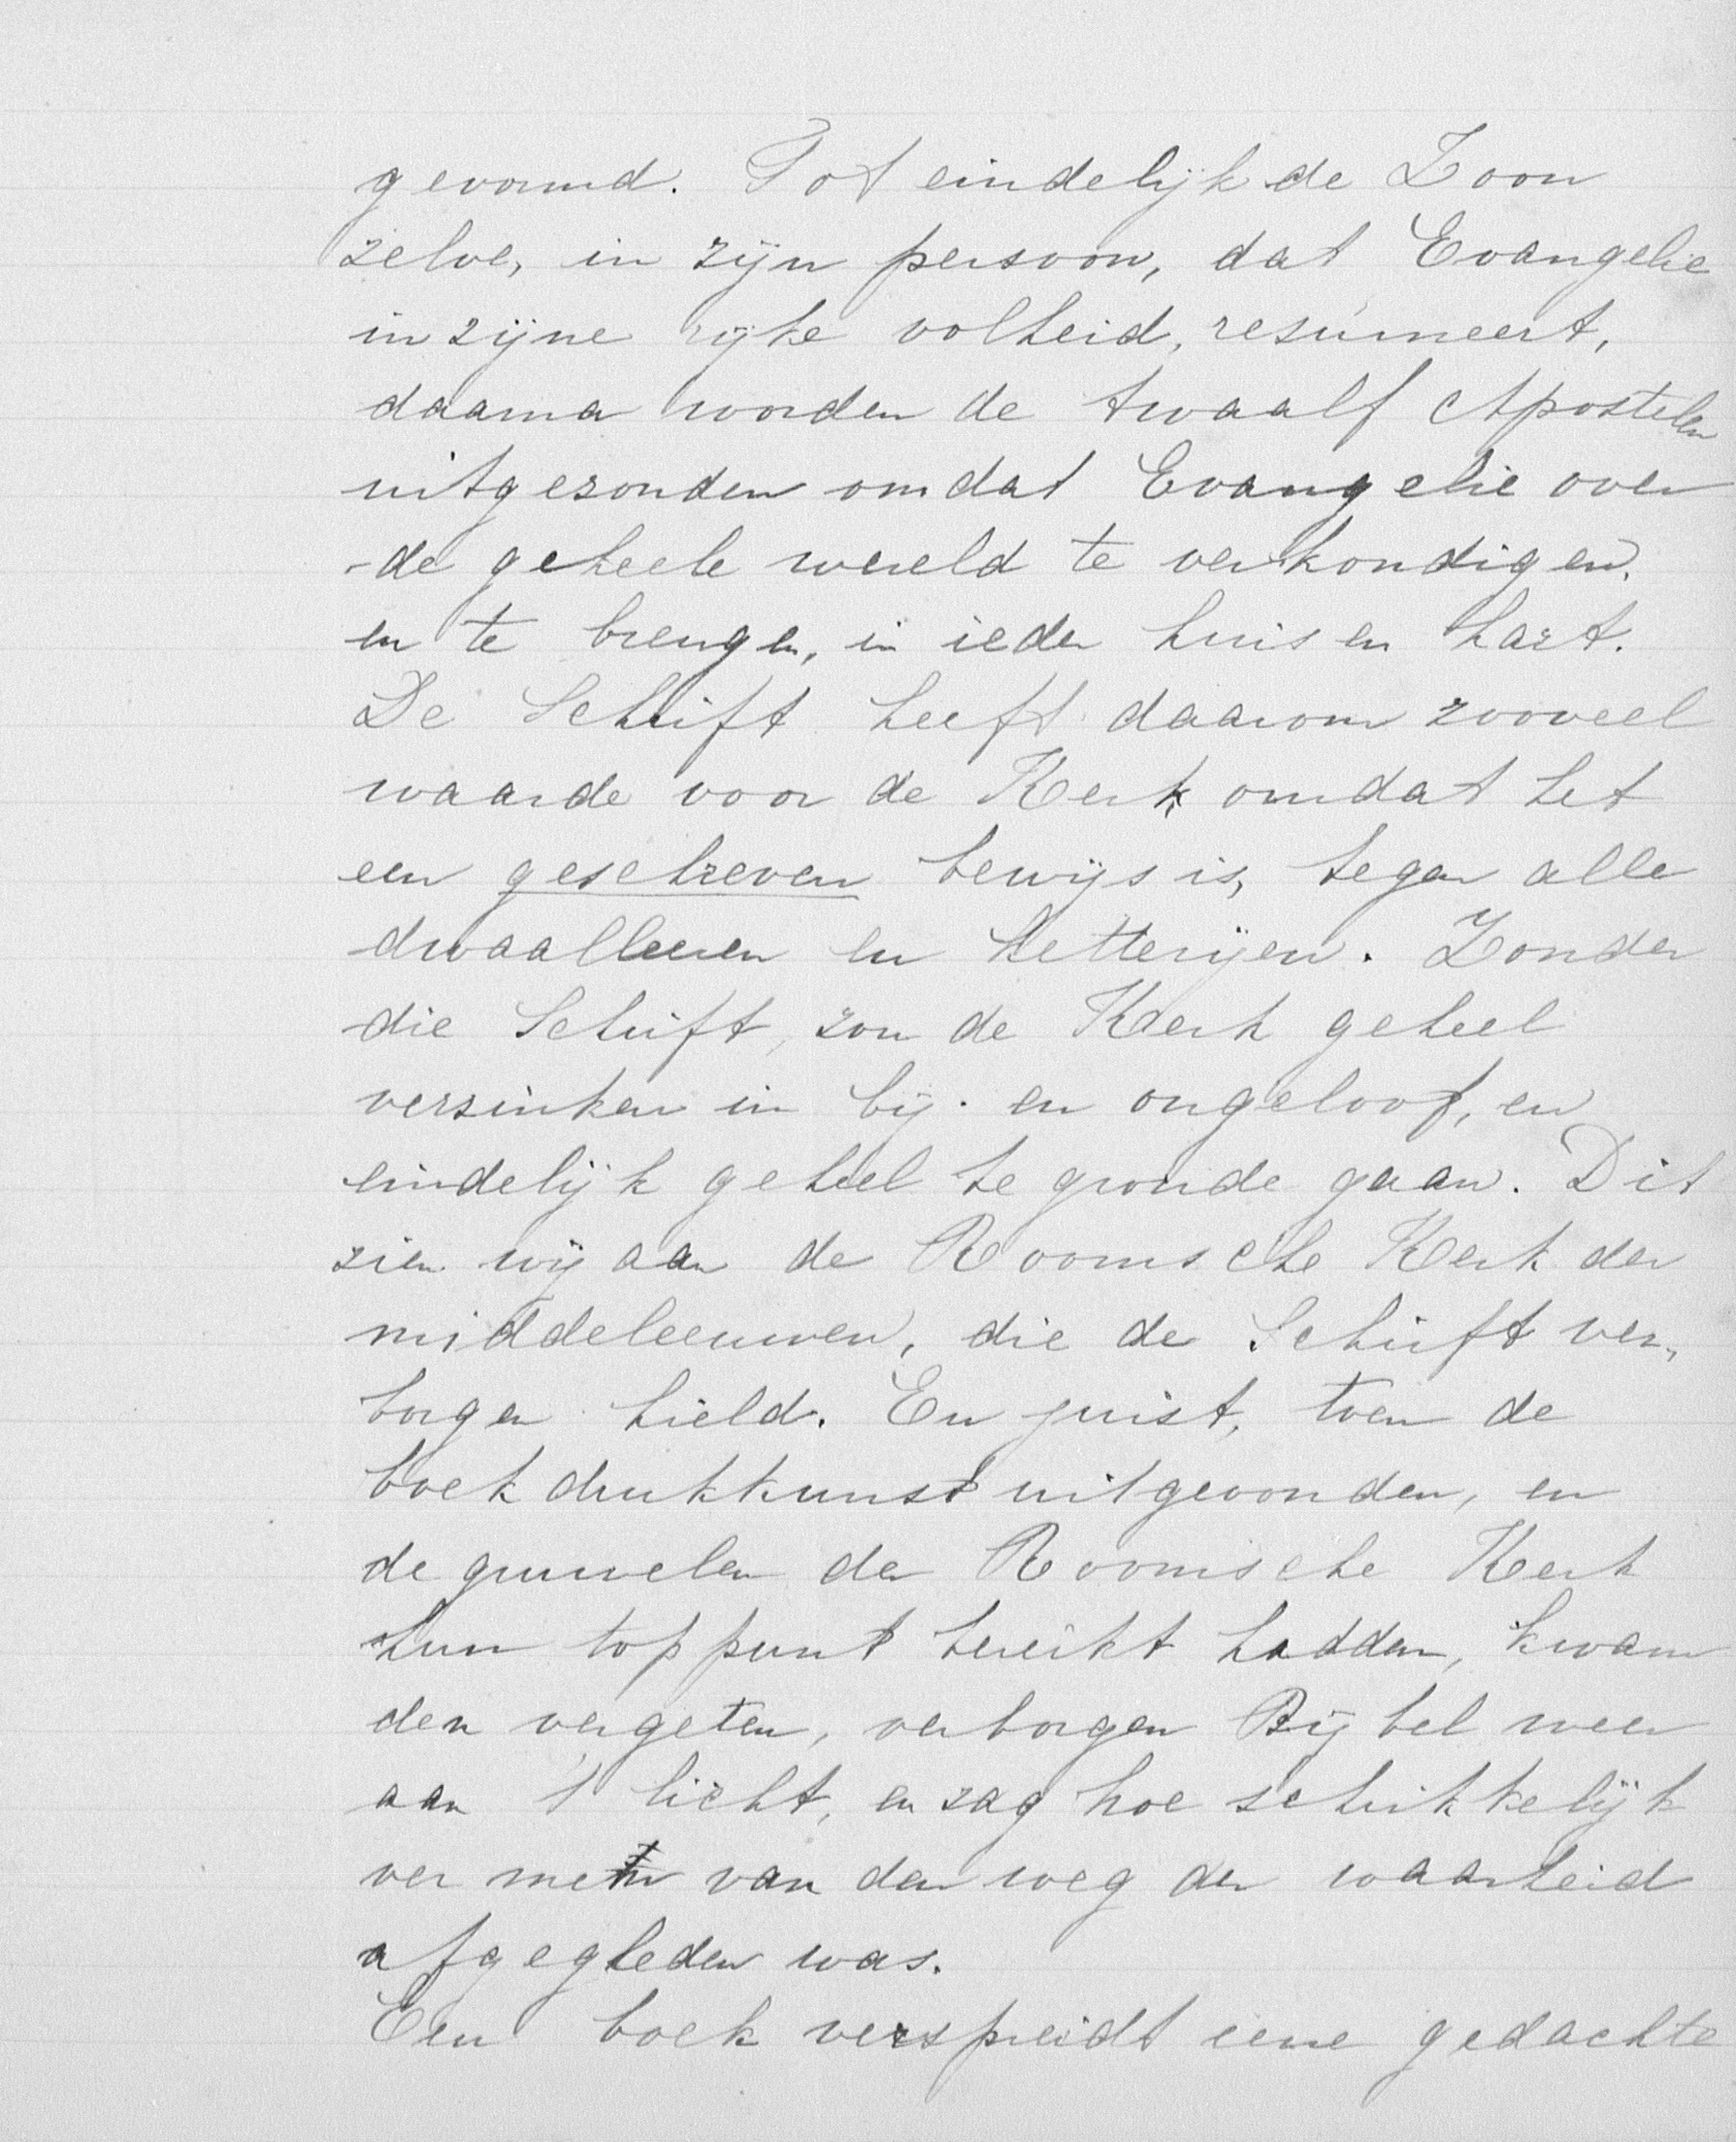 gevormd. Tot eindelijk de Zoon
zelve, in zijn persoon, dat Evangelie
in zijne rijke volheid, resumeert,
daarna worden de twaalf Apostelen
uitgezonden om dat Evangelie over
de geheele wereld te verkondigen.
en te brengen, in ieder huis en hart.
De Schrift heeft daarom zooveel
waarde voor de Kerk omdat het
een geschreven bewijs is, tegen alle
dwaalleeren en ketterijen. Zonder
die Schrift, zou de Kerk geheel
verzinken in bij- en ongeloof, en
eindelijk geheel te gronde gaan. Dit
zien wij aan de Roomsche Kerk der
middeleeuwen, die de Schrift ver„
borgen hield. En juist, toen de
boekdrukkunst uitgevonden, en
de gruwelen der Roomsche Kerk
hun toppunt bereikt hadden, kwam
den vergeten, verborgen Bijbel weer
aan 't licht, en zag hoe schrikkelijk
ver men van den weg der waarheid
afgegleden was.
Een boek verspreidt eene gedachte